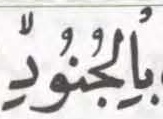 بِالجُنُودِ